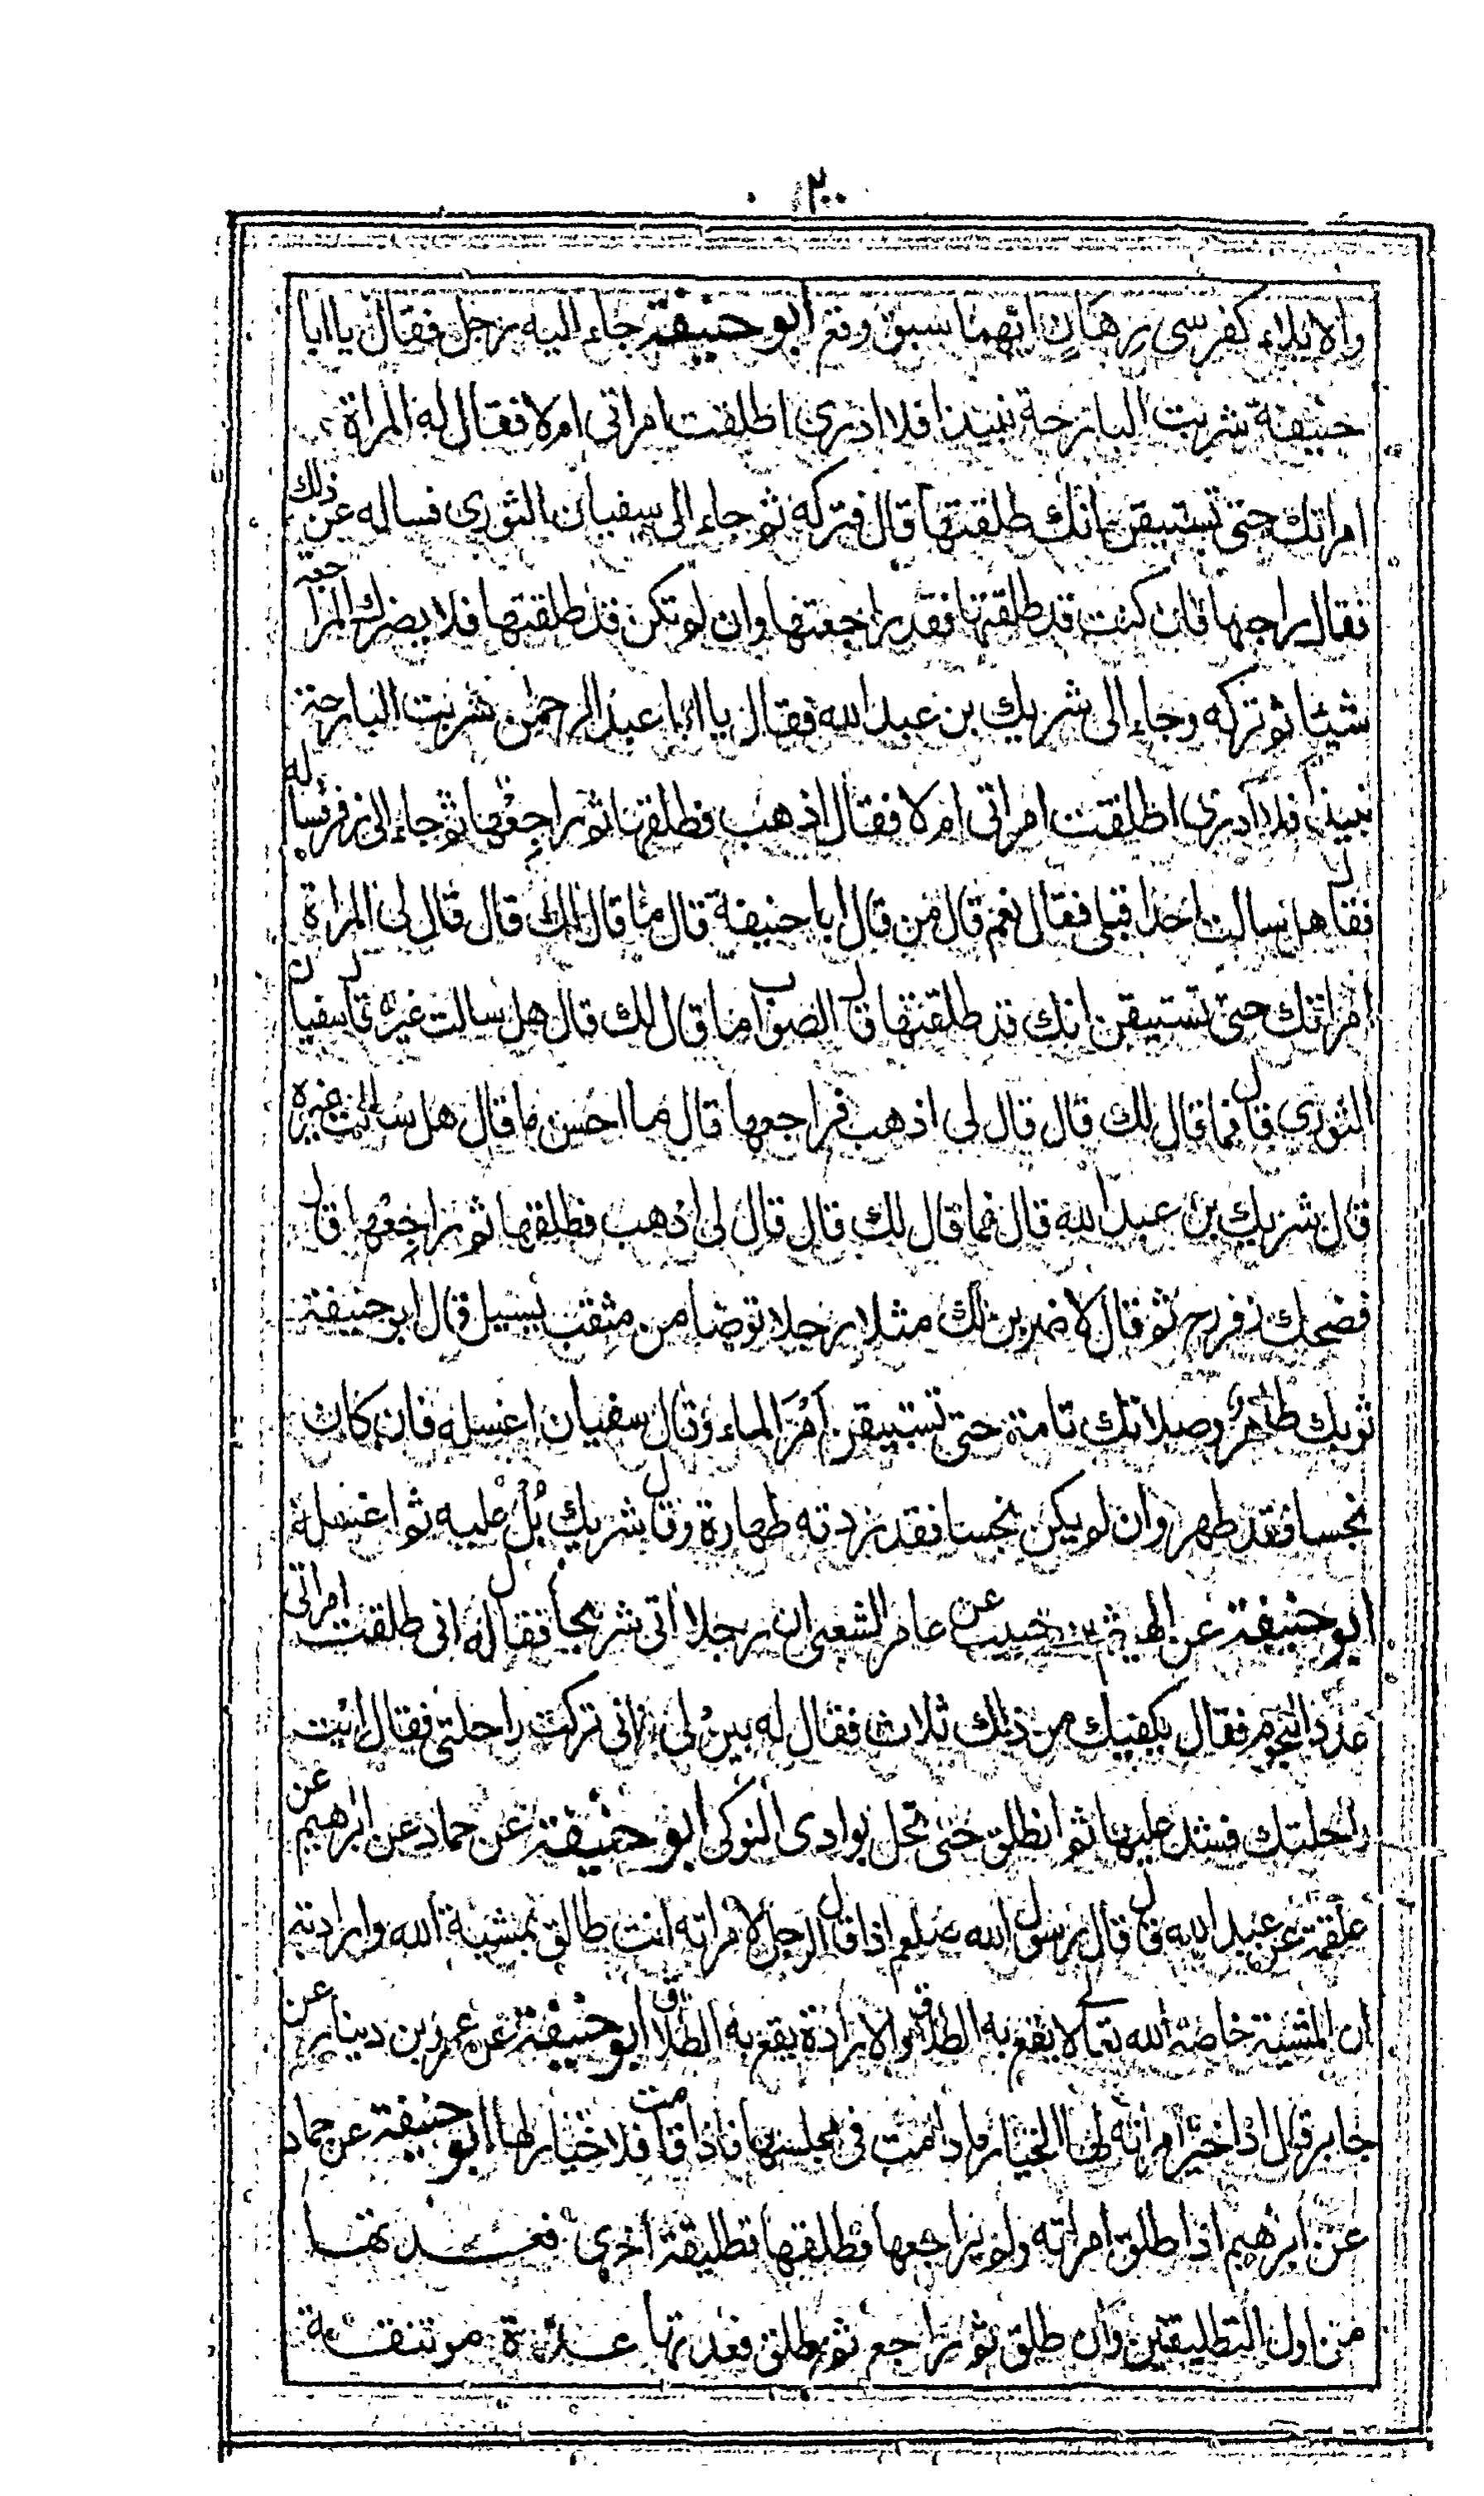 ٢٠٠
والايلاء كفرسى رهان ايهما سبق وقع ابو حنيفة جاء اليه رجل فقال يا ابا
حنيفة شربت البارحة نبيذا فلا ادرى اطلقت امراتى ام لا فقال له المراة
امراتك حتى تستيقن انك طلقتها قال فتركه ثم جاء الى سفيان الثورى فساله عن ذلك
فقال راجعها فان كنت قد طلقتها فقد راجعتها وان لم تكن قد طلقتها فلا يضرك المراجعة
شيئا ثم تركه وجاء الى شريك بن عبد الله فقال يا ابا عبد الرحمن شربت البارحة
نبيذا فلا ادرى اطلقت امراتى ام لا فقال اذهب فطلقها ثم راجعها ثم جاء الى زفر فساله
فقال هل سالت احدا قبلى فقال نعم قال من قال ابا حنيفة قال ما قال لك قال قال لى المراة
امراتك حتى تستيقن انك قد طلقتها قال الصواب ما قال لك قال هل سالت غيره قال سفيان
الثورى قال فما قال لك قال قال لى اذهب فراجعها قال ما احسن ما قال هل سالت غيره
قال شريك بن عبد الله قال فما قال لك قال قال لى اذهب فطلقها ثم راجعها قال
فضحك زفر رح ثم قال لاضربن لك مثلا رجلا توضا من مثقب يسيل قال ابو حنيفة
ثوبك طاهر وصلاتك تامة حتى تستيقن امر الماء وقال سفيان اغسله فان كان
نجسا فقد طهر وان لم يكن نجسا فقد زدته طهارة وقال شريك بل عليه ثم اغسله
ابو حنيفة عن الهيثم بن حبيب عن عامر الشعبى ان رجلا اتى شريحا فقال له انى طلقت امراتى
عدد النجوم فقال يكفيك من ذلك ثلاث فقال له بين لى انى تركت راحلتى فقال ائت
راحلتك فشد عليها ثم انطلق حتى تحل بوادى النوكى ابو حنيفة عن حماد عن ابرهيم عن
علقمة عن عبد الله قال قال رسول الله صلعم اذا قال الرجل لامراته انت طالق بمشية الله وارادته
ان المشية خاصة الله تعالى لا يقع به الطلاق والارادة يقع به الطلاق ابو حنيفة عن عمرو بن دينار عن
جابر قال اذا خير امراته لها الخيار ما دامت فى مجلسها فاذا قامت فلا خيار لها ابو حنيفة عن حماد
عن ابرهيم اذا طلق امراته ولم يراجعها فطلقها تطليقة اخرى فعدتها
من اول التطليقين وان طلق ثم راجع ثم طلق فعدتها عدة موتنفة